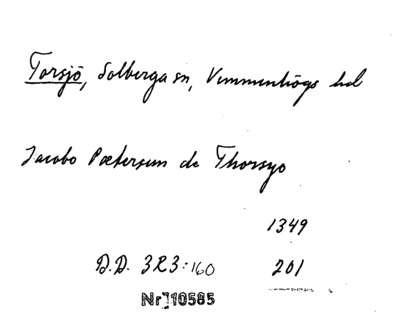 Torsjö, Solberga sn, Vemmenhögs hd
Jacobo Pætersun de Thorsyo
1349
D.D. 3R3:160 201
Nr 10585